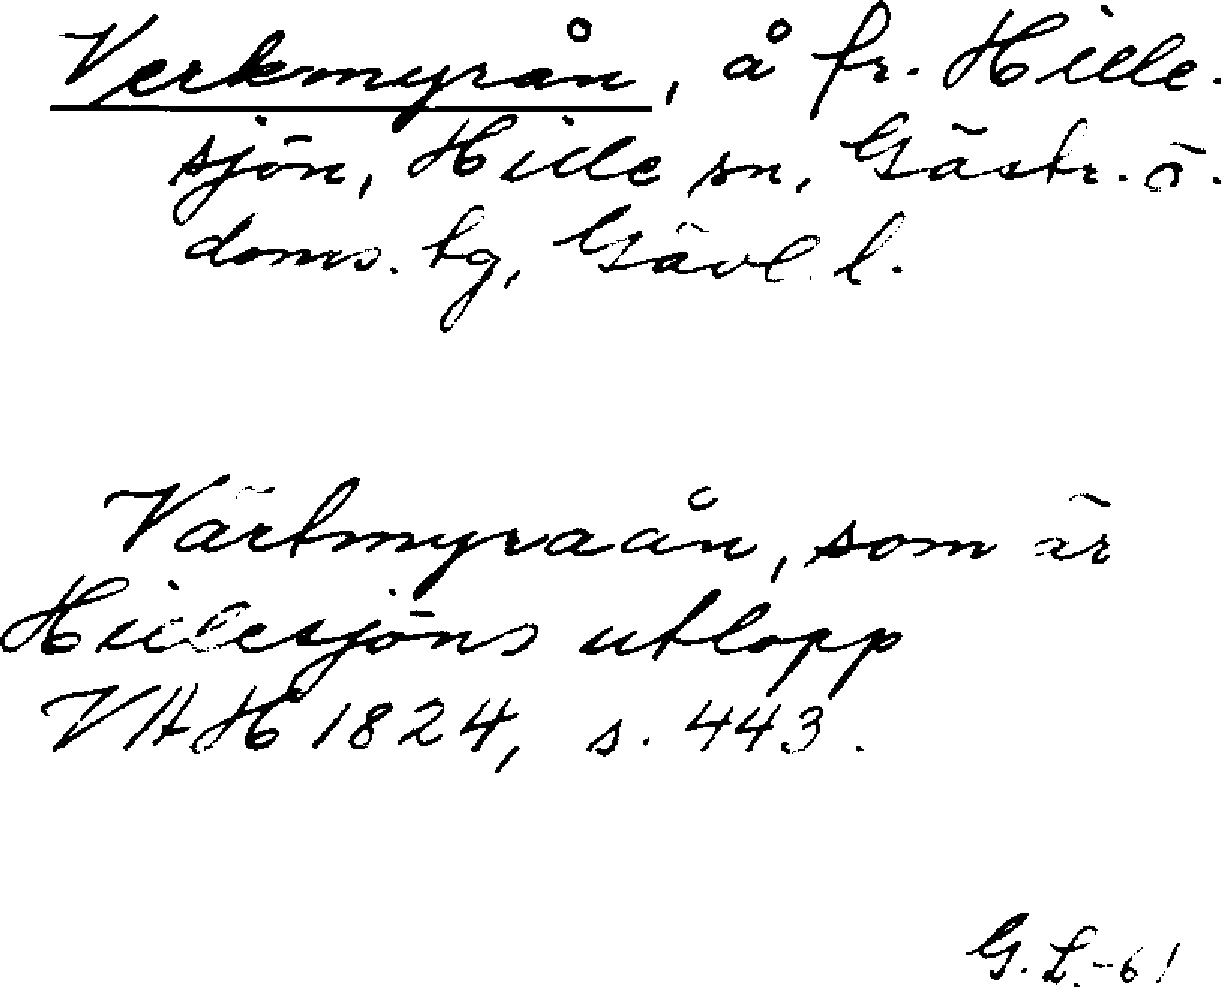 Verkmyrån, å fr. Hille-
sjön, Hille sn, Gästr. ö.
doms. tg, Gävl. l.
Värtmyraån, som är
Hillesjöns utlopp
VAH 1824, s. 443.
G. L. -61